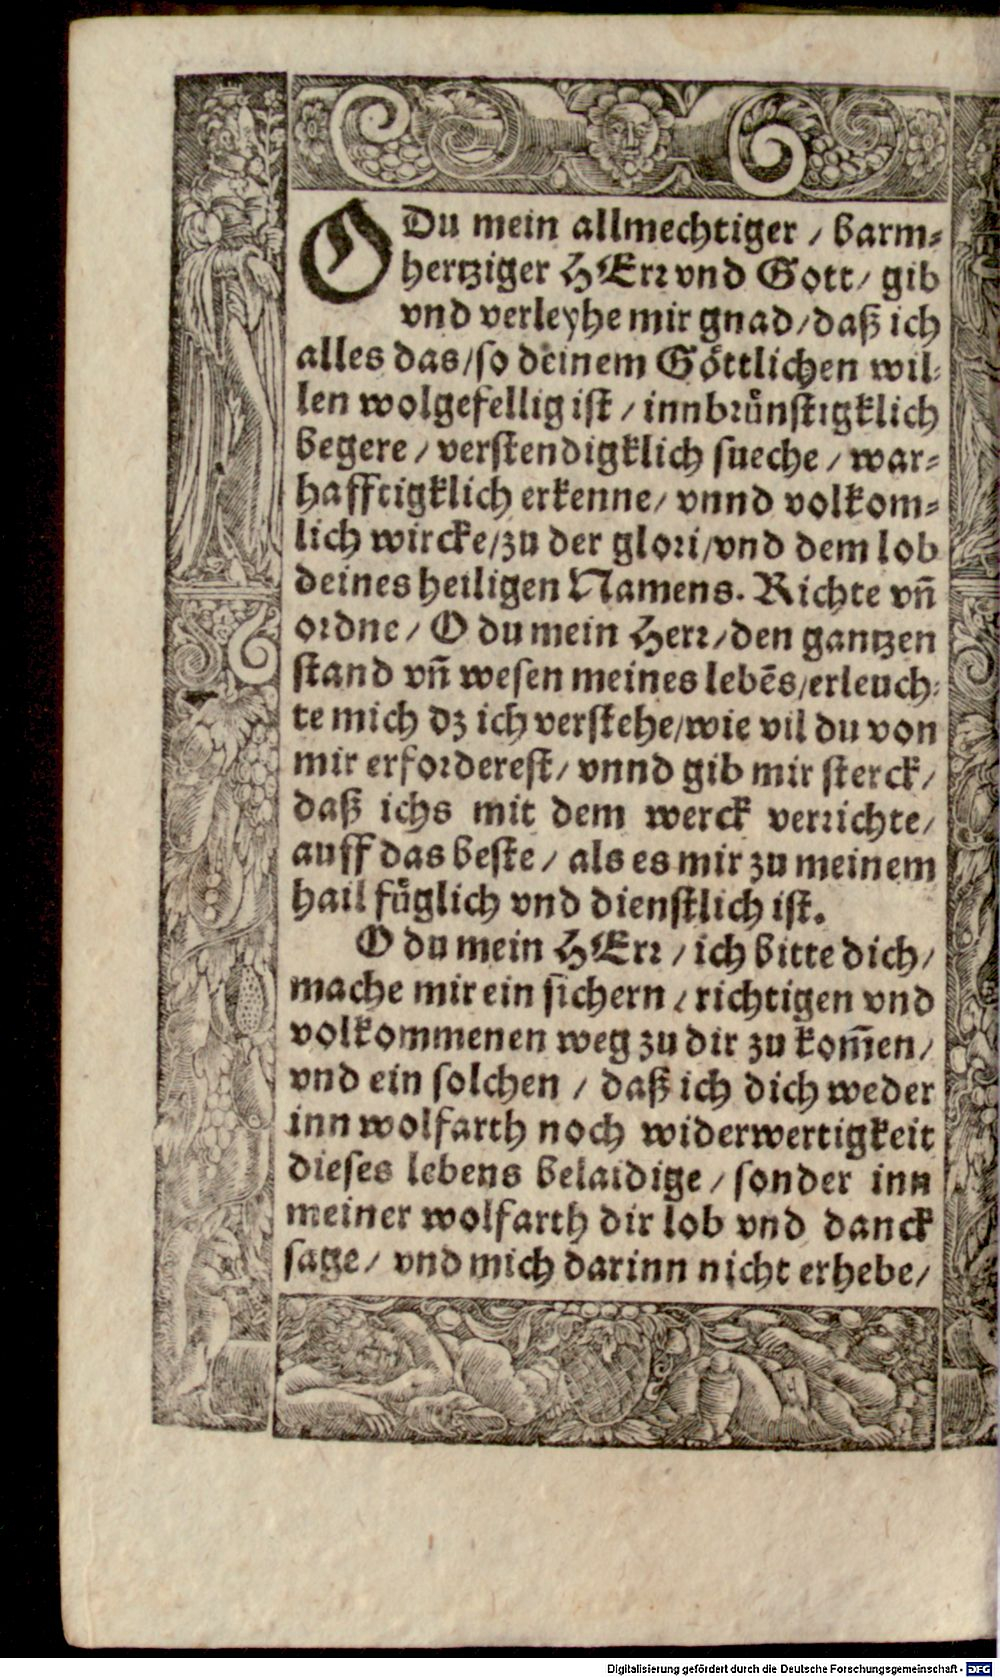 O Du mein allmechtiger / barm⸗
hertziger HErr vnd Gott / gib
vnd verleyhe mir gnad / daß ich
alles das / so deinem Göttlichen wil⸗
len wolgefellig ist / innbrünstigklich
begere / verstendigklich sueche / war⸗
hafftigklich erkenne / vnnd volkom⸗
lich wircke / zu der glori / vnd dem lob
deines heiligen Namens. Richte vñ
ordne / O du mein Herr / den gantzen
stand vñ wesen meines lebẽs / erleuch⸗
te mich dz ich verstehe / wie vil du von
mir erforderest / vnnd gib mir sterck /
daß ichs mit dem werck verrichte /
auff das beste / als es mir zu meinem
hail füglich vnd dienstlich ist.
O du mein HErr / ich bitte dich /
mache mir ein sichern / richtigen vnd
volkommenen weg zu dir zu kom̃en /
vnd ein solchen / daß ich dich weder
inn wolfarth noch widerwertigkeit
dieses lebens belaidige / sonder inn
meiner wolfarth dir lob vnd danck
sage / vnd mich darinn nicht erhebe /
Digitalisierung gefördert durch die Deutsche Forschungsgemeinschaft - DFG